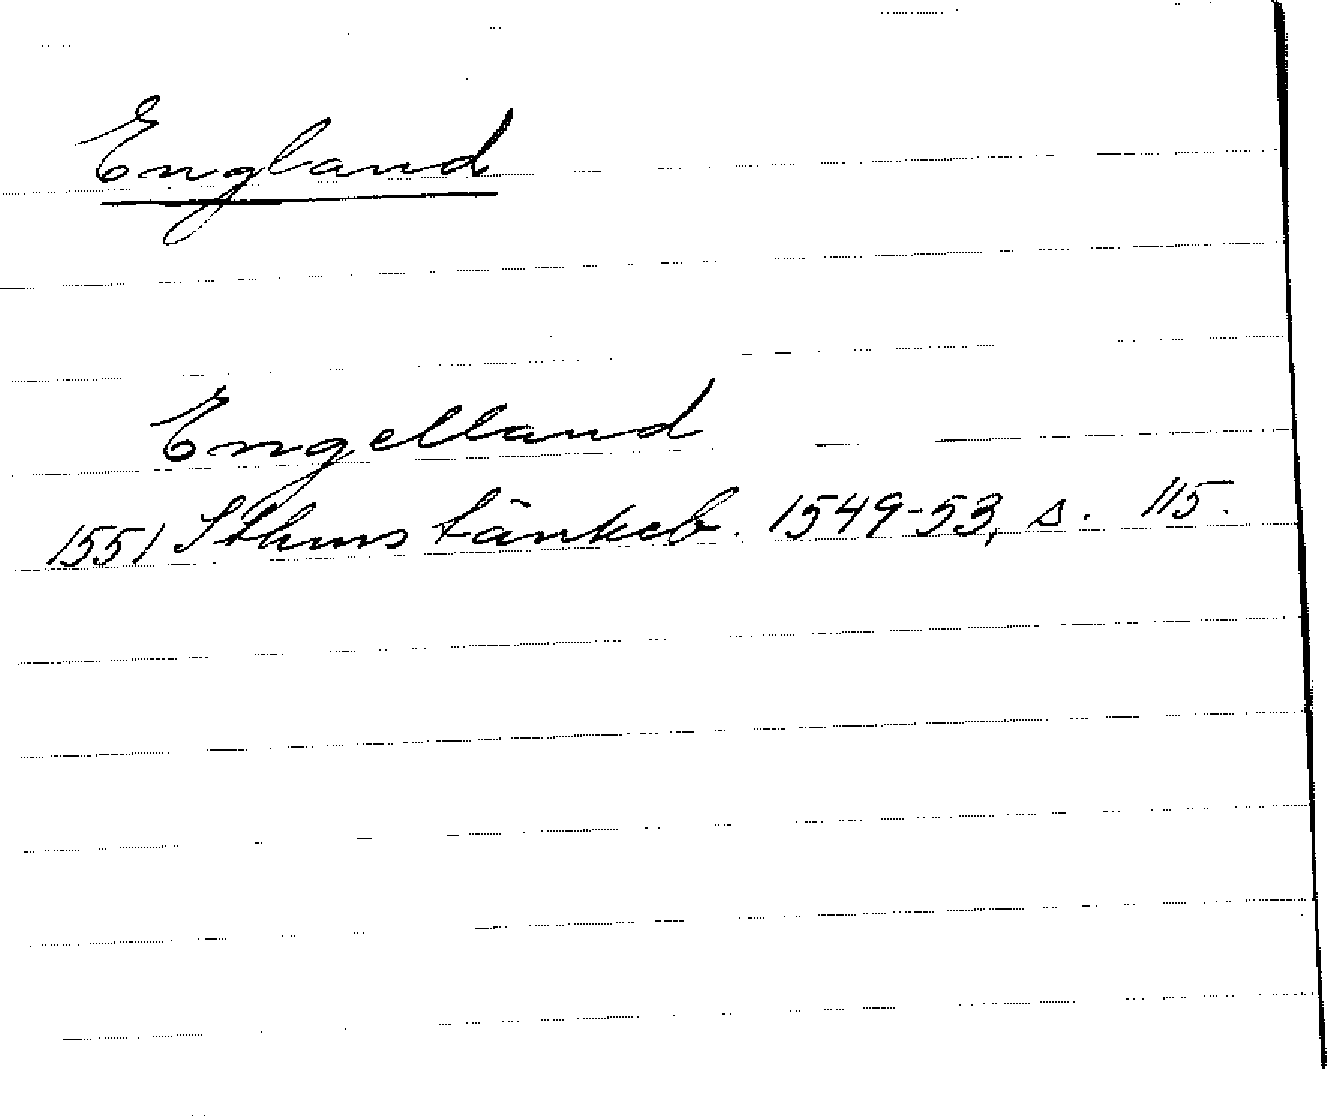 England
Engelland
1551 Sthms tänkeb. 1549-53, s. 115.